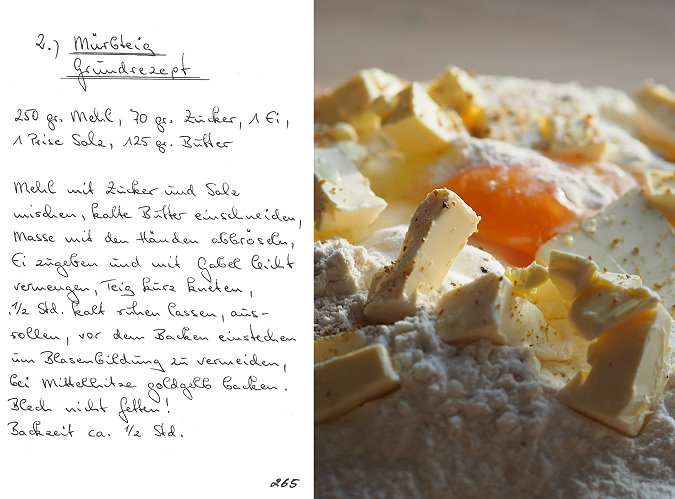 2.) Mürbteig
Grundrezept
250 gr. Mehl, 70 gr. Zucker, 1 Ei,
1 Prise Salz, 125 gr. Butter
Mehl mit Zucker und Salz
mischen, kalte Butter einschneiden,
Masse mit den Händen abbröseln,
Ei zugeben und mit Gabel leicht
vermengen, Teig kurz kneten,
1/2 Std. kalt ruhen lassen, aus-
rollen, vor dem Backen einstechen
um Blasenbildung zu vermeiden,
bei Mittelhitze goldgelb backen.
Blech nicht fetten!
Backzeit ca. 1/2 Std.
265